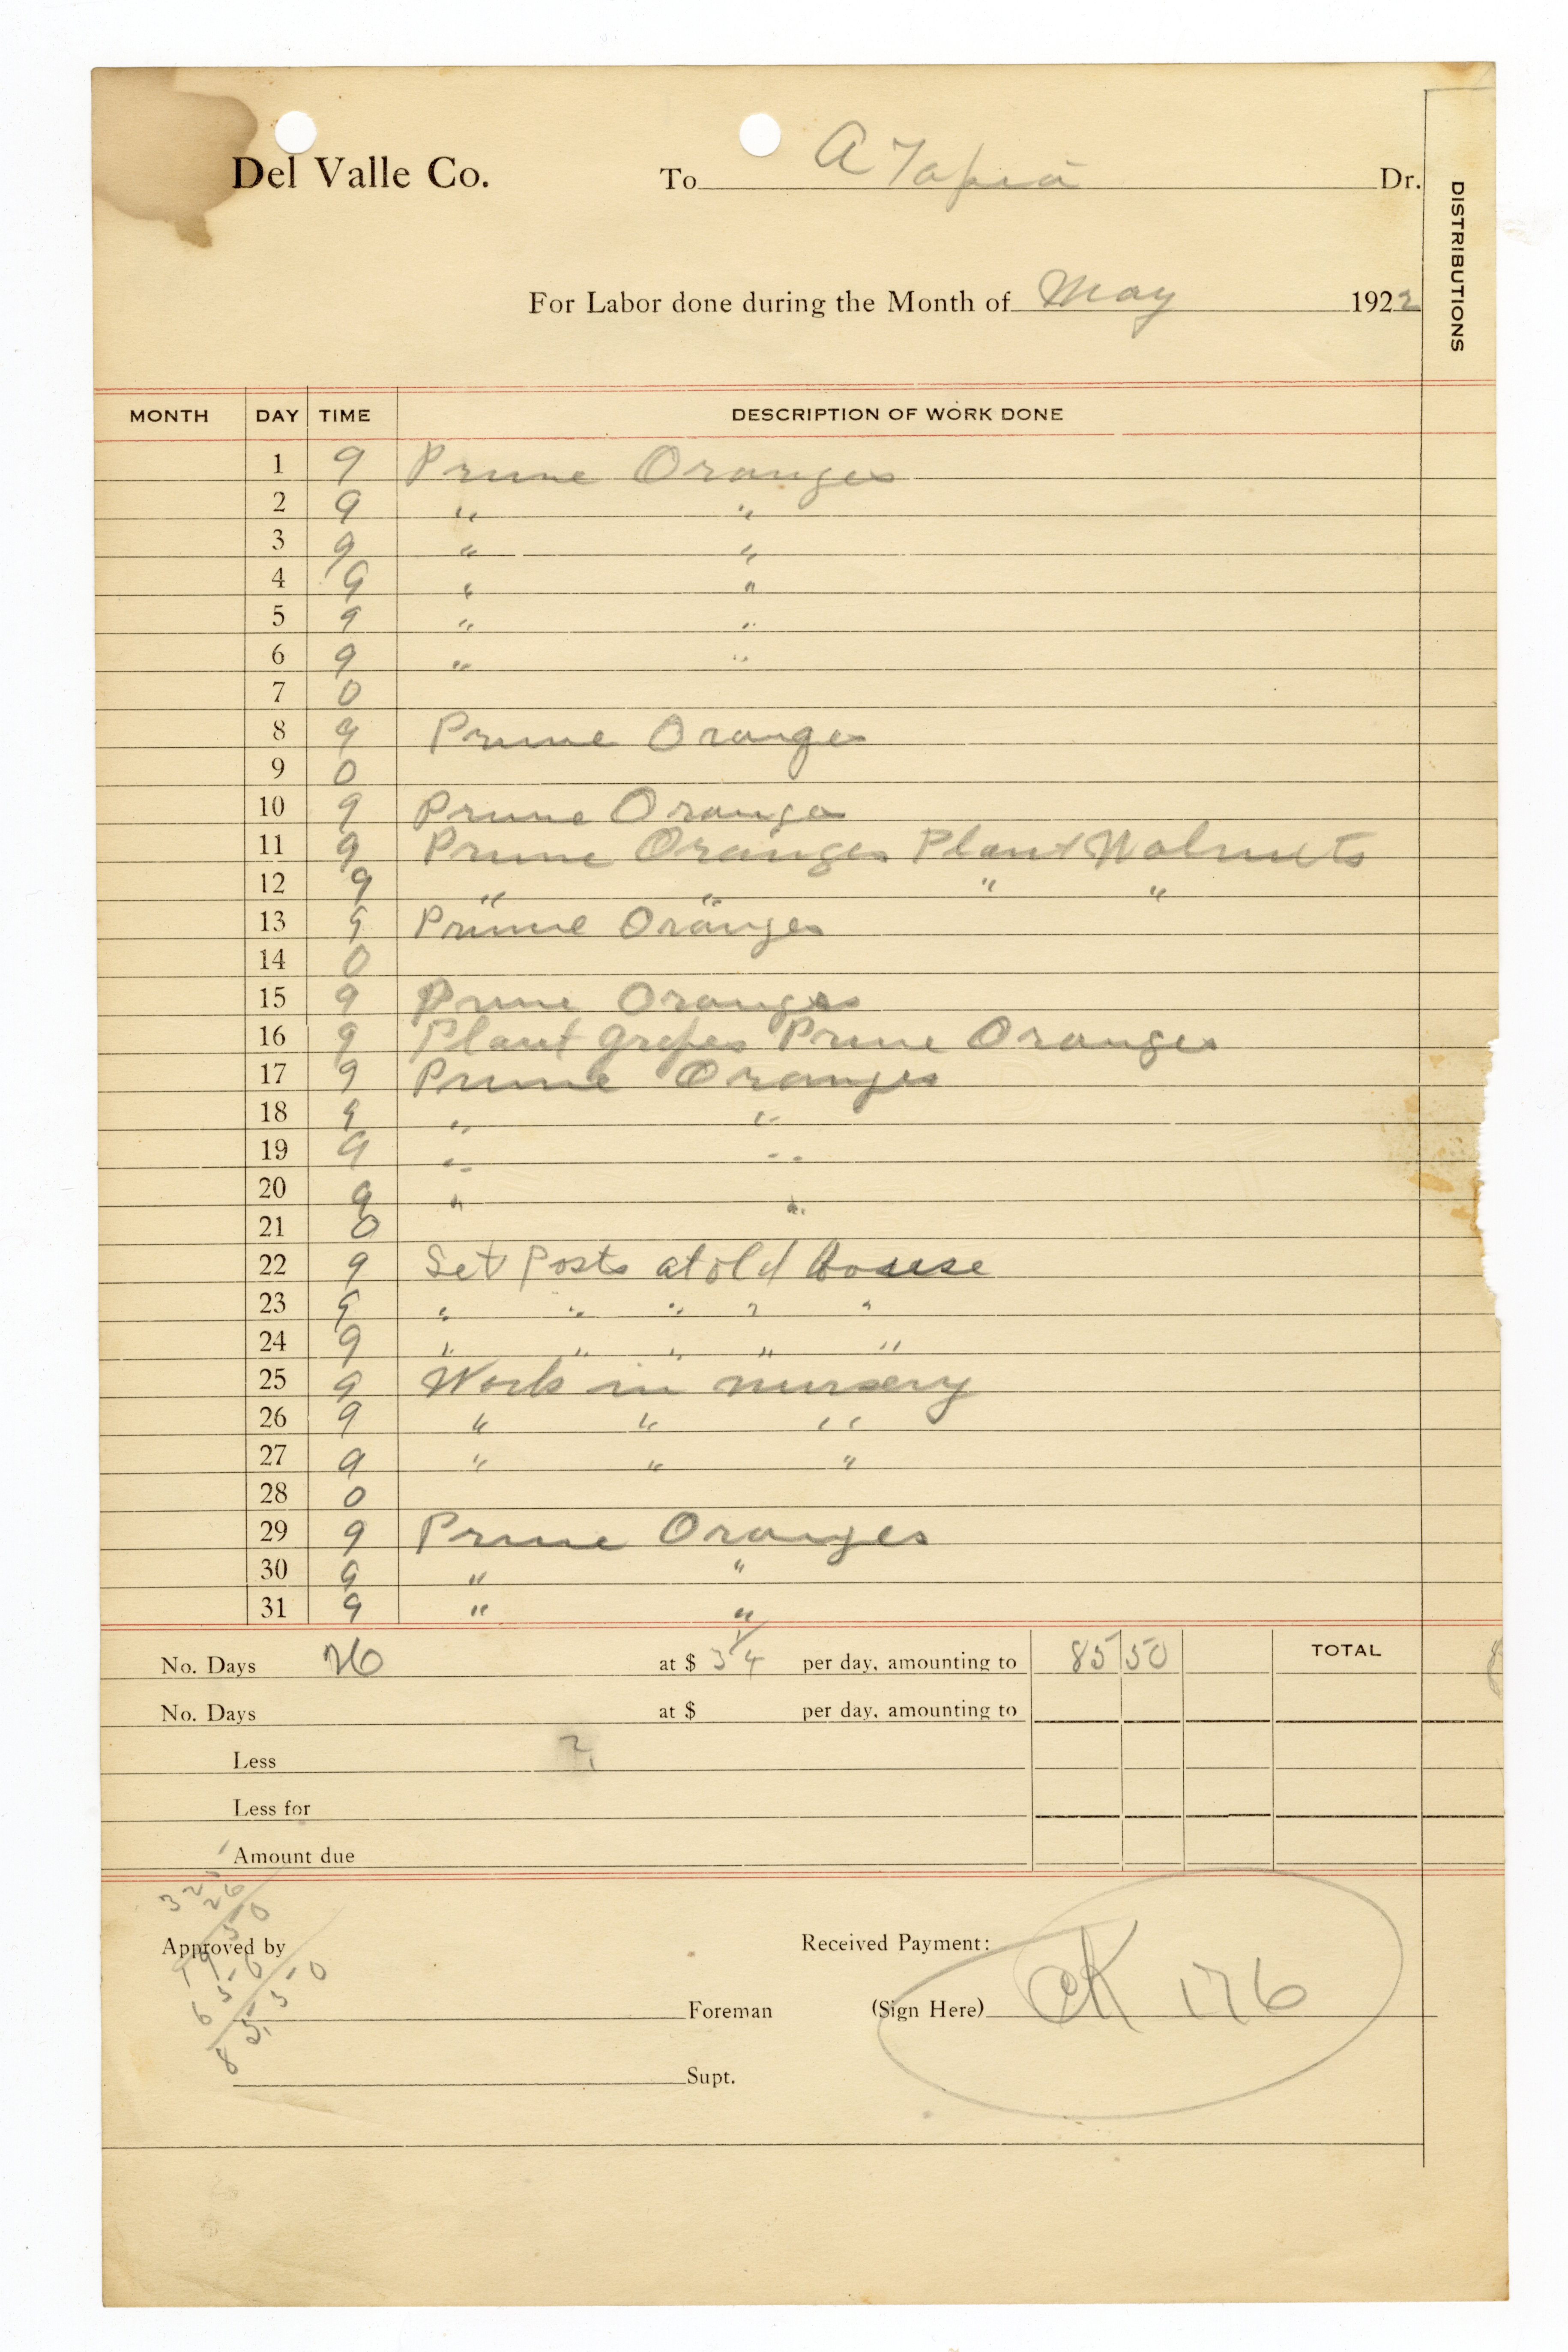 Del Valle Co. To A Tapia Dr.
DISTRIBUTIONS
For Labor done during the Month of May 1922
MONTH DAY TIME DESCRIPTION OF WORK DONE
1 9 Prune Oranges
2 9 " "
3 9 " "
4 9 " "
5 9 " "
6 9 " "
7 0
8 9 Prune Oranges
9 0
10 9 Prune Oranges
11 9 Prune Oranges Plant Walnuts
12 9 " " " "
13 9 Prune Oranges
14 0
15 9 Prune Oranges
16 9 Plant grapes Prune Oranges
17 9 Prune Oranges
18 9 " "
19 9 " "
20 9 " "
21 0
22 9 Set Posts at old house
23 9 " " " " "
24 9 " " " " "
25 9 Work in nursery
26 9 " " "
27 9 " " "
28 0
29 9 Prune Oranges
30 9 " "
31 9 " "
No. Days 26 at $ 3 1/4 per day, amounting to 85 50 TOTAL 8
No. Days at $ per day, amounting to
Less 2
Less for
Amount due
325
26
1950
650
8550
Approved by Received Payment:
Foreman (Sign Here) CK 176
Supt.